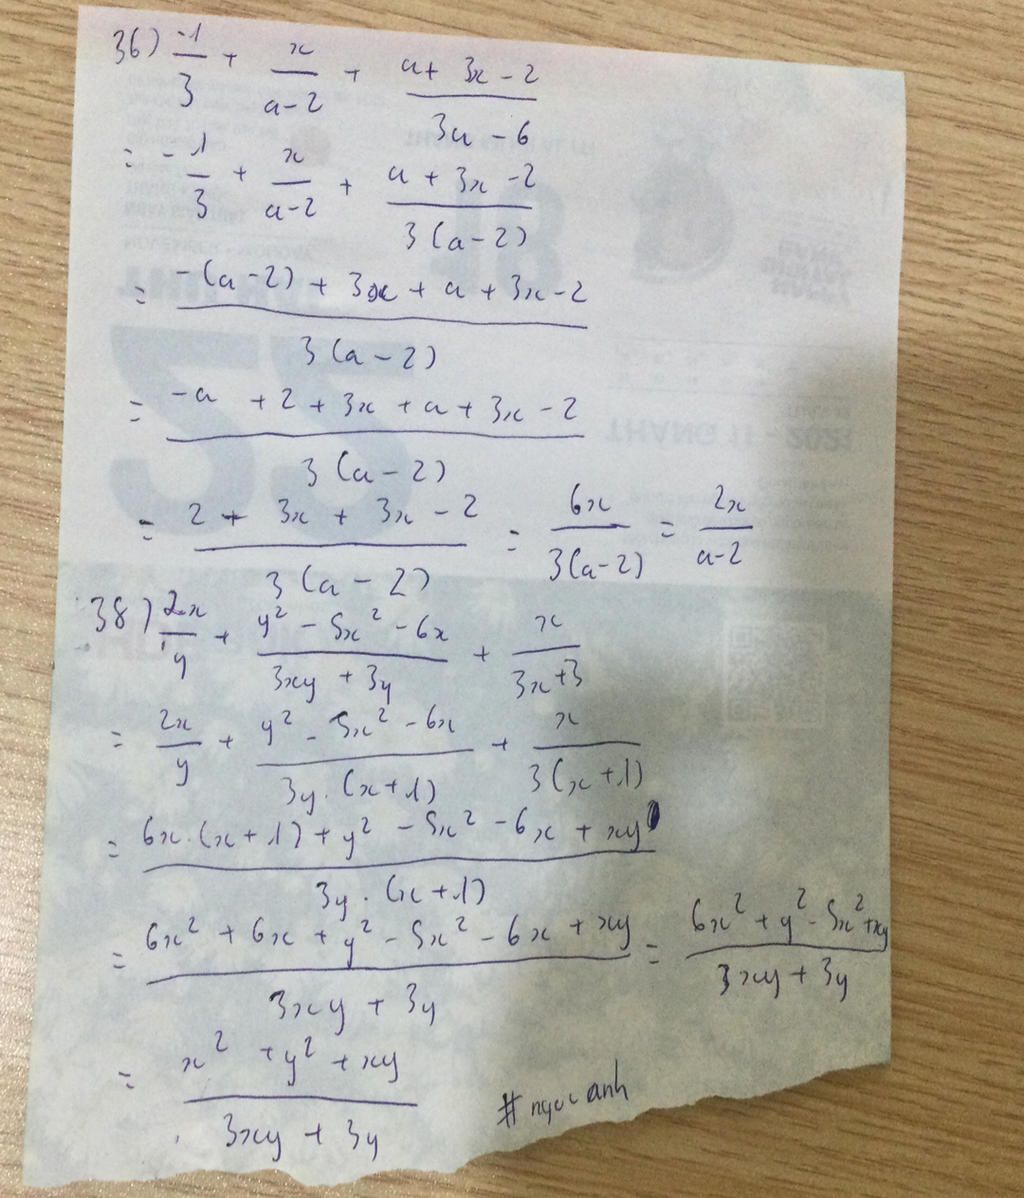 36) -1/3 + x/(a-2) + (a + 3x - 2)/(3a - 6)
= -1/3 + x/(a-2) + (a + 3x - 2)/(3(a-2))
= (-(a-2) + 3x + a + 3x - 2)/(3(a-2))
= (-a + 2 + 3x + a + 3x - 2)/(3(a-2))
= (2 + 3x + 3x - 2)/(3(a-2)) = 6x/(3(a-2)) = 2x/(a-2)
38) 2x/y + (y² - 5x² - 6x)/(3xy + 3y) + x/(3x+3)
= 2x/y + (y² - 5x² - 6x)/(3y.(x+1)) + x/(3(x+1))
= (6x.(x+1) + y² - 5x² - 6x + xy)/(3y.(x+1))
= (6x² + 6x + y² - 5x² - 6x + xy)/(3xy + 3y) = (6x² + y² - 5x² + xy)/(3xy + 3y)
= (x² + y² + xy)/(3xy + 3y)
# ngoc anh
THÁNG 11 - 2021
22
18